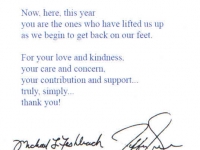 Now, here, this year
you are the ones who have lifted us up
as we begin to get back on our feet.
For your love and kindness,
your care and concern,
your contribution and support...
truly, simply...
thank you!
Michael L. Feshbach